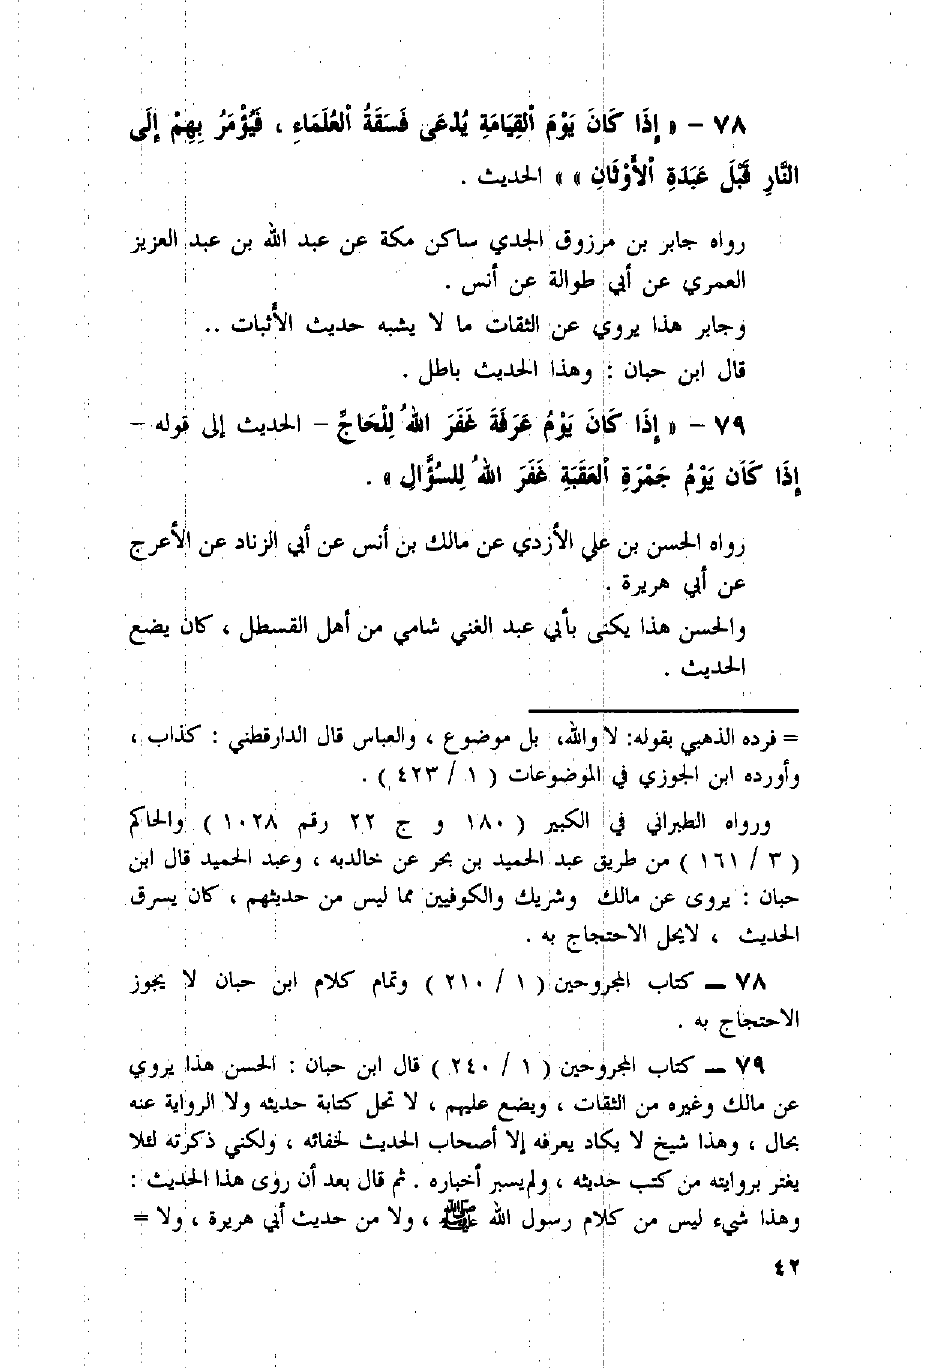 ٧٨ – « إِذَا كَانَ يَوْمَ ٱلْقِيَامَةِ يُدْعَى فَسَقَةُ ٱلْعُلَمَاءِ ، فَيُؤْمَرُ بِهِمْ إِلَى
النَّارِ قَبْلَ عَبَدَةِ ٱلْأَوْثَانِ » » الحديث .
رواه جابر بن مرزوق الجدي ساكن مكة عن عبد الله بن عبد العزيز
العمري عن أبي طوالة عن أنس .
وجابر هذا يروي عن الثقات ما لا يشبه حديث الأثبات ..
قال ابن حبان : وهذا الحديث باطل .
٧٩ – « إِذَا كَانَ يَوْمُ عَرَفَةَ غَفَرَ اللهُ لِلْحَاجِّ – الحديث إلى قوله –
إِذَا كَانَ يَوْمُ جَمْرَةِ ٱلْعَقَبَةِ غَفَرَ اللهُ لِلسُّؤَّالِ » .
رواه الحسن بن علي الأزدي عن مالك بن أنس عن أبي الزناد عن الأعرج
عن أبي هريرة .
والحسن هذا يكنى بأبي عبد الغني شامي من أهل القسطل ، كان يضع
الحديث .
= فرده الذهبي بقوله: لا والله، بل موضوع ، والعباس قال الدارقطني : كذاب ،
وأورده ابن الجوزي في الموضوعات ( ١ / ٤٢٣ ) .
ورواه الطبراني في الكبير ( ١٨٠ و ج ٢٢ رقم ١٠٢٨ ) والحاكم
( ٣ / ١٦١ ) من طريق عبد الحميد بن بحر عن خالدبه ، وعبد الحميد قال ابن
حبان : يروى عن مالك وشريك والكوفيين مما ليس من حديثهم ، كان يسرق
الحديث ، لايحل الاحتجاج به .
٧٨ – كتاب المجروحين ( ١ / ٢١٠ ) وتمام كلام ابن حبان لا يجوز
الاحتجاج به .
٧٩ – كتاب المجروحين ( ١ / ٢٤٠ ) قال ابن حبان : الحسن هذا يروي
عن مالك وغيره من الثقات ، ويضع عليهم ، لا تحل كتابة حديثه ولا الرواية عنه
بحال ، وهذا شيخ لا يكاد يعرفه إلا أصحاب الحديث لخفائه ، ولكني ذكرته لئلا
يغتر بروايته من كتب حديثه ، ولم يسبر أخباره . ثم قال بعد أن روى هذا الحديث :
وهذا شيء ليس من كلام رسول الله ﷺ ، ولا من حديث أبي هريرة ، ولا =
٤٢